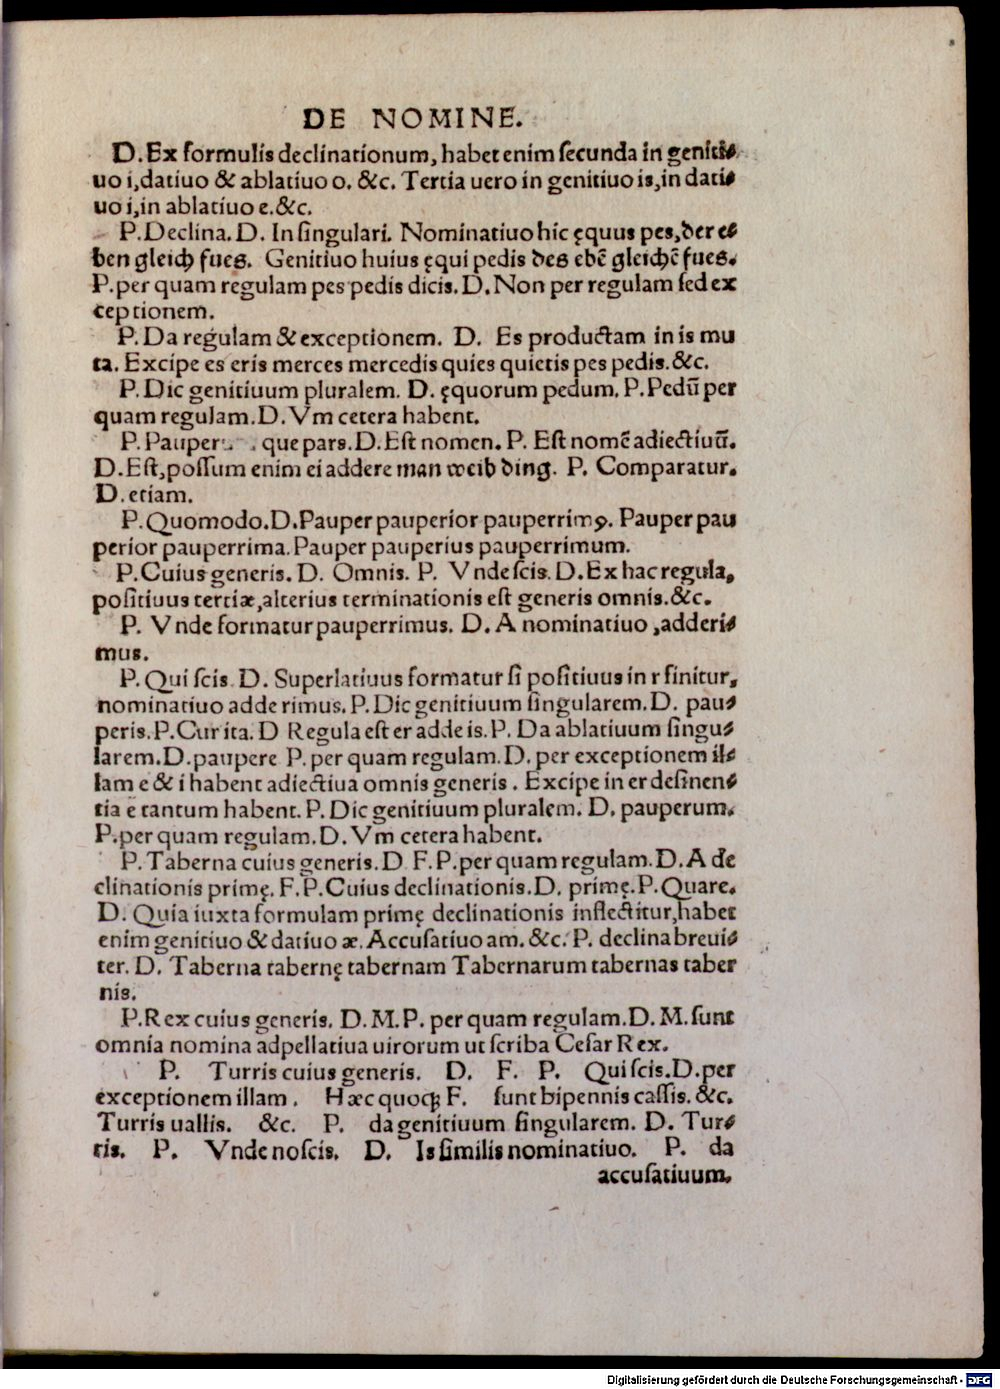 DE NOMINE.
D. Ex formulis declinationum, habet enim secunda in geniti⸗
uo i, datiuo & ablatiuo o. &c. Tertia uero in genitiuo is, in dati⸗
uo i, in ablatiuo e. &c.
P. Declina. D. In singulari. Nominatiuo hic ęquus pes, der e⸗
ben gleich fues. Genitiuo huius ęqui pedis des ebē gleichē fues.
P. per quam regulam pes pedis dicis. D. Non per regulam sed ex
ceptionem.
P. Da regulam & exceptionem. D. Es productam in is mu
ta. Excipe es eris merces mercedis quies quietis pes pedis. &c.
P. Dic genitiuum pluralem. D. ęquorum pedum. P. Pedū per
quam regulam. D. Vm cetera habent.
P. Pauper que pars. D. Est nomen. P. Est nomē adiectiuū.
D. Est, possum enim ei addere man weib ding. P. Comparatur.
D. etiam.
P. Quomodo. D. Pauper pauperior pauperrimꝰ. Pauper pau
perior pauperrima. Pauper pauperius pauperrimum.
P. Cuius generis. D. Omnis. P. Vnde scis. D. Ex hac regula,
positiuus tertiæ, alterius terminationis est generis omnis. &c.
P. Vnde formatur pauperrimus. D. A nominatiuo, adderi⸗
mus.
P. Qui scis D. Superlatiuus formatur si positiuus in r finitur,
nominatiuo adde rimus. P. Dic genitiuum singularem. D. pau⸗
peris. P. Cur ita. D Regula est er adde is. P. Da ablatiuum singu⸗
larem. D. paupere P. per quam regulam. D. per exceptionem il⸗
lam e & i habent adiectiua omnis generis. Excipe in er desinen⸗
tia e tantum habent. P. Dic genitiuum pluralem. D. pauperum.
P. per quam regulam. D. Vm cetera habent.
P. Taberna cuius generis. D F. P. per quam regulam. D. A de
clinationis primę. F. P. Cuius declinationis. D. primę. P. Quare.
D. Quia iuxta formulam primę declinationis inflectitur, habet
enim genitiuo & datiuo æ. Accusatiuo am. &c. P. declina breui⸗
ter. D. Taberna tabernę tabernam Tabernarum tabernas taber
nis.
P. Rex cuius generis. D. M. P. per quam regulam. D. M. sunt
omnia nomina adpellatiua uirorum ut scriba Cesar Rex.
P. Turris cuius generis. D. F. P. Qui scis. D. per
exceptionem illam. Hæc quoqꝫ F. sunt bipennis cassis. &c.
Turris uallis. &c. P. da genitiuum singularem. D. Tur⸗
ris. P. Vnde noscis. D. Is similis nominatiuo. P. da
accusatiuum.
Digitalisierung gefördert durch die Deutsche Forschungsgemeinschaft - DFG